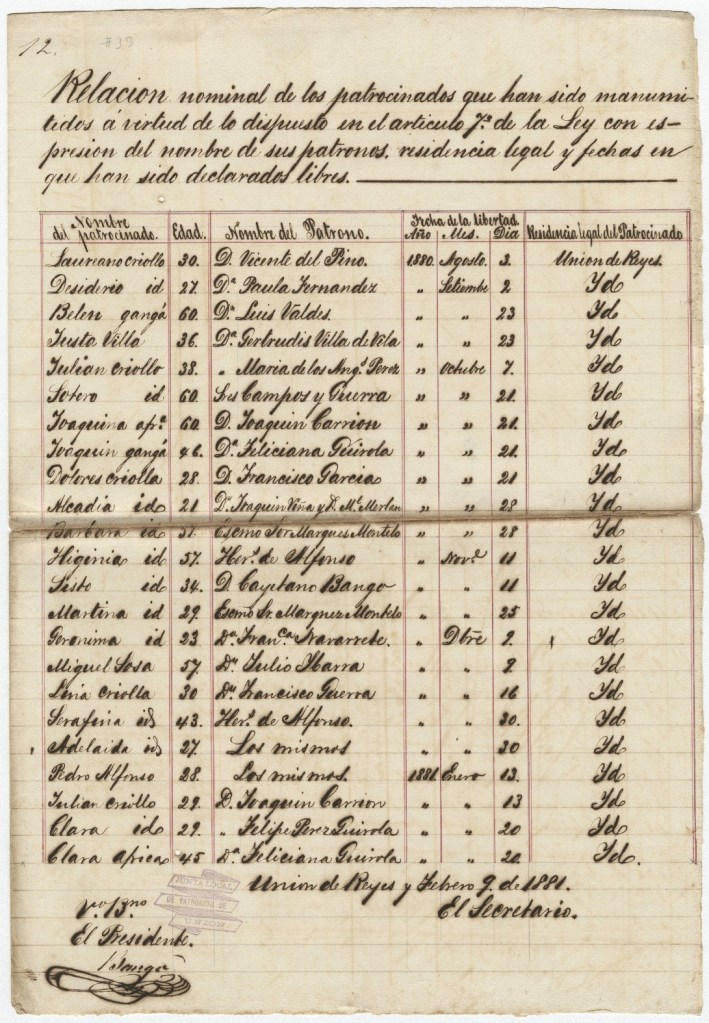 12. #39
Relacion nominal de los patrocinados que han sido manumi-
tidos á virtud de lo dispuesto en el articulo 7º de la Ley con es-
presion del nombre de sus patronos, residencia legal y fechas en
que han sido declarados libres.
Nombre del patrocinado. Edad. Nombre del Patrono. Fecha de la libertad Año Mes. Dia Residencia legal del Patrocinado
Laureano criollo 30. D. Vicente del Pino. 1880. Agosto. 3. Union de Reyes.
Desiderio id 27. Dª Paula Fernandez " Setiembre 2 Yd
Belen gangá 60. Dn Luis Valdes. " " 23 Yd
Justa Villa 36. Dª Gertrudis Villa de Vila " " 23 Yd
Julian criollo 38. " Maria de los Angs Perez " Octubre 7. Yd
Sotero id 60. Sres Campos y Guerra " " 21. Yd
Joaquina afrª 60. D. Joaquin Carrion " " 21. Yd
Joaquin gangá 46. Dª Feliciana Guirola " " 21. Yd
Dolores criolla 28. D. Francisco Garcia " " 21 Yd
Alcadia id 21 Dn Joaquin Viña y D. Ml Merlan " " 28 Yd
Barbara id 51. Escmo Sor Marques Montelo " " 28 Yd
Higinia id 57. Hers de Alfonso " Nove 11 Yd
Sisto id 34. D Cayetano Bango " " 11 Yd
Martina id 29. Escmo Sr. Marquez Montelo " " 25 Yd
Geronima id 23 Dª Francª Navarrete. " Dbre 2. Yd
Miguel Sosa 57. Dn Julio Ibarra " " 9 Yd
Lina criolla 30 Dn Francisco Guerra " " 16 Yd
Serafina id 43. Hers de Alfonso. " " 30. Yd
Adelaida id 27. Los mismos " " 30 Yd
Pedro Alfonso 28. Los mismos. 1881. Enero 13. Yd
Julian criollo 29. D. Joaquin Carrion " " 13 Yd
Clara id 29. " Felipe Perez Guirola " " 20 Yd
Clara africa 45 Dª Feliciana Guirola " " 20 Yd.
Union de Reyes y Febrero 9 de 1881.
Vº Bno El Secretario.
El Presidente.
JUNTA LOCAL
DE PATRONOS DE
Bango